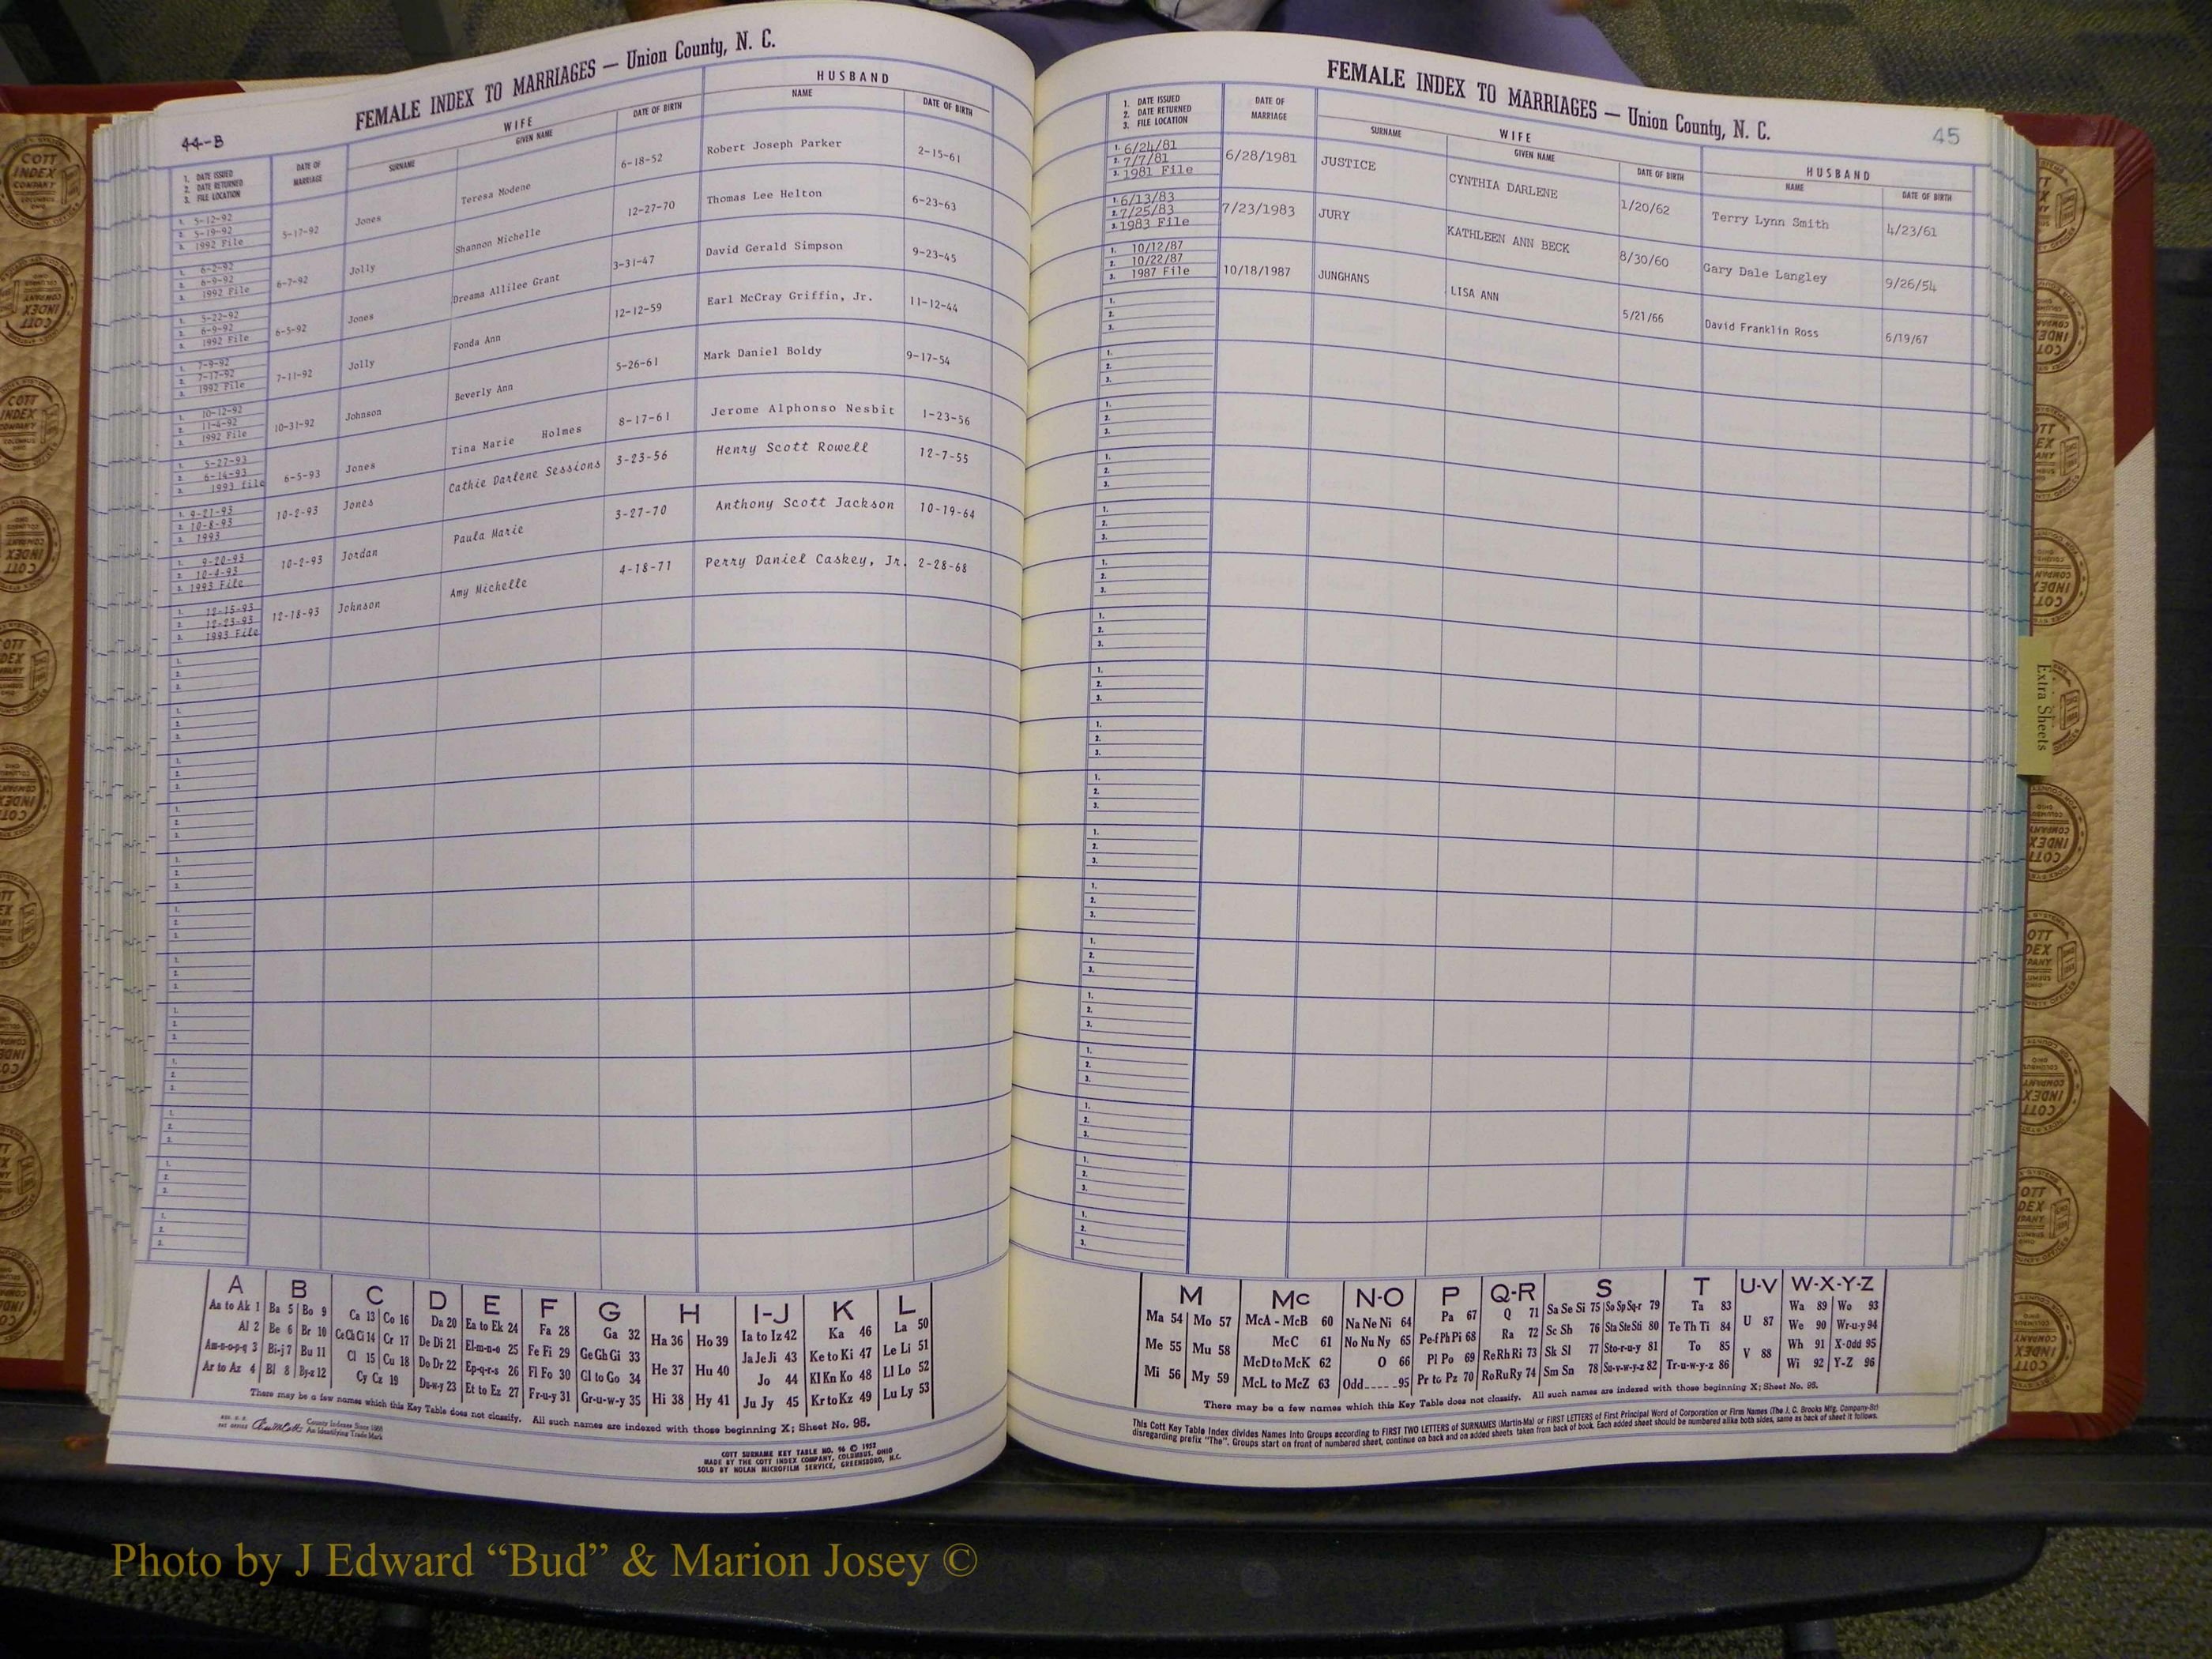 44-B
FEMALE INDEX TO MARRIAGES — Union County, N. C.
1. DATE ISSUED 2. DATE RETURNED 3. FILE LOCATION
DATE OF MARRIAGE
WIFE
SURNAME GIVEN NAME DATE OF BIRTH
HUSBAND
NAME DATE OF BIRTH
1. 5-12-92 2. 5-19-92 3. 1992 File 5-17-92 Jones Teresa Modene 6-18-52 Robert Joseph Parker 2-15-61
1. 6-2-92 2. 6-9-92 3. 1992 File 6-7-92 Jolly Shannon Michelle 12-27-70 Thomas Lee Helton 6-23-63
1. 5-22-92 2. 6-9-92 3. 1992 File 6-5-92 Jones Dreama Allilee Grant 3-31-47 David Gerald Simpson 9-23-45
1. 7-9-92 2. 7-17-92 3. 1992 File 7-11-92 Jolly Fonda Ann 12-12-59 Earl McCray Griffin, Jr. 11-12-44
1. 10-12-92 2. 11-4-92 3. 1992 File 10-31-92 Johnson Beverly Ann 5-26-61 Mark Daniel Boldy 9-17-54
1. 5-27-93 2. 6-14-93 3. 1993 file 6-5-93 Jones Tina Marie Holmes 8-17-61 Jerome Alphonso Nesbit 1-23-56
1. 9-21-93 2. 10-8-93 3. 1993 10-2-93 Jones Cathie Darlene Sessions 3-23-56 Henry Scott Rowell 12-7-55
1. 9-20-93 2. 10-4-93 3. 1993 File 10-2-93 Jordan Paula Marie 3-27-70 Anthony Scott Jackson 10-19-64
1. 12-15-93 2. 12-23-93 3. 1993 File 12-18-93 Johnson Amy Michelle 4-18-71 Perry Daniel Caskey, Jr. 2-28-68
A B C D E F G H I-J K L
Aa to Ak 1 Ba 5 Bo 9 Ca 13 Co 16 Da 20 Ea to Ek 24 Fa 28 Ga 32 Ha 36 Ho 39 Ia to Iz 42 Ka 46 La 50
Al 2 Be 6 Br 10 Ce Ch Ci 14 Cr 17 De Di 21 El-m-n-o 25 Fe Fi 29 Ge Gh Gi 33 Ja Je Ji 43 Ke to Ki 47 Le Li 51
Am-n-o-p-q 3 Bi-j 7 Bu 11 Cl 15 Cu 18 Do Dr 22 Ep-q-r-s 26 Fl Fo 30 Gl to Go 34 He 37 Hu 40 Jo 44 Kl Kn Ko 48 Ll Lo 52
Ar to Az 4 Bl 8 By-z 12 Cy Cz 19 Du-w-y 23 Et to Ez 27 Fr-u-y 31 Gr-u-w-y 35 Hi 38 Hy 41 Ju Jy 45 Kr to Kz 49 Lu Ly 53
There may be a few names which this Key Table does not classify. All such names are indexed with those beginning X; Sheet No. 95.
County Indexes Since 1888
An Identifying Trade Mark
COTT SURNAME KEY TABLE NO. 96 © 1952
MADE BY THE COTT INDEX COMPANY, COLUMBUS, OHIO
SOLD BY NOLAN MICROFILM SERVICE, GREENSBORO, N.C.
45
FEMALE INDEX TO MARRIAGES — Union County, N. C.
1. DATE ISSUED 2. DATE RETURNED 3. FILE LOCATION
DATE OF MARRIAGE
WIFE
SURNAME GIVEN NAME DATE OF BIRTH
HUSBAND
NAME DATE OF BIRTH
1. 6/24/81 2. 7/7/81 3. 1981 File 6/28/1981 JUSTICE CYNTHIA DARLENE 1/20/62 Terry Lynn Smith 4/23/61
1. 6/13/83 2. 7/25/83 3. 1983 File 7/23/1983 JURY KATHLEEN ANN BECK 8/30/60 Gary Dale Langley 9/26/54
1. 10/12/87 2. 10/22/87 3. 1987 File 10/18/1987 JUNGHANS LISA ANN 5/21/66 David Franklin Ross 6/19/67
M Mc N-O P Q-R S T U-V W-X-Y-Z
Ma 54 Mo 57 McA - McB 60 Na Ne Ni 64 Pa 67 Q 71 Sa Se Si 75 So Sp Sq-r 79 Ta 83 U 87 Wa 89 Wo 93
Me 55 Mu 58 McC 61 No Nu Ny 65 Pe-f Ph Pi 68 Ra 72 Sc Sh 76 Sta Ste Sti 80 Te Th Ti 84 We 90 Wr-u-y 94
McD to McK 62 O 66 Pl Po 69 Re Rh Ri 73 Sk Sl 77 Sto-r-u-y 81 To 85 V 88 Wh 91 X-Odd 95
Mi 56 My 59 McL to McZ 63 Odd 95 Pr to Pz 70 Ro Ru Ry 74 Sm Sn 78 Su-v-w-y-z 82 Tr-u-w-y-z 86 Wi 92 Y-Z 96
There may be a few names which this Key Table does not classify. All such names are indexed with those beginning X; Sheet No. 95.
This Cott Key Table Index divides Names Into Groups according to FIRST TWO LETTERS of SURNAMES (Martin-Ma) or FIRST LETTERS of First Principal Word of Corporation or Firm Names (The J. C. Brooks Mfg. Company-Br)
disregarding prefix "The". Groups start on front of numbered sheet, continue on back and on added sheets taken from back of book. Each added sheet should be numbered alike both sides, same as back of sheet it follows.
Extra Sheets
Photo by J Edward “Bud” & Marion Josey ©